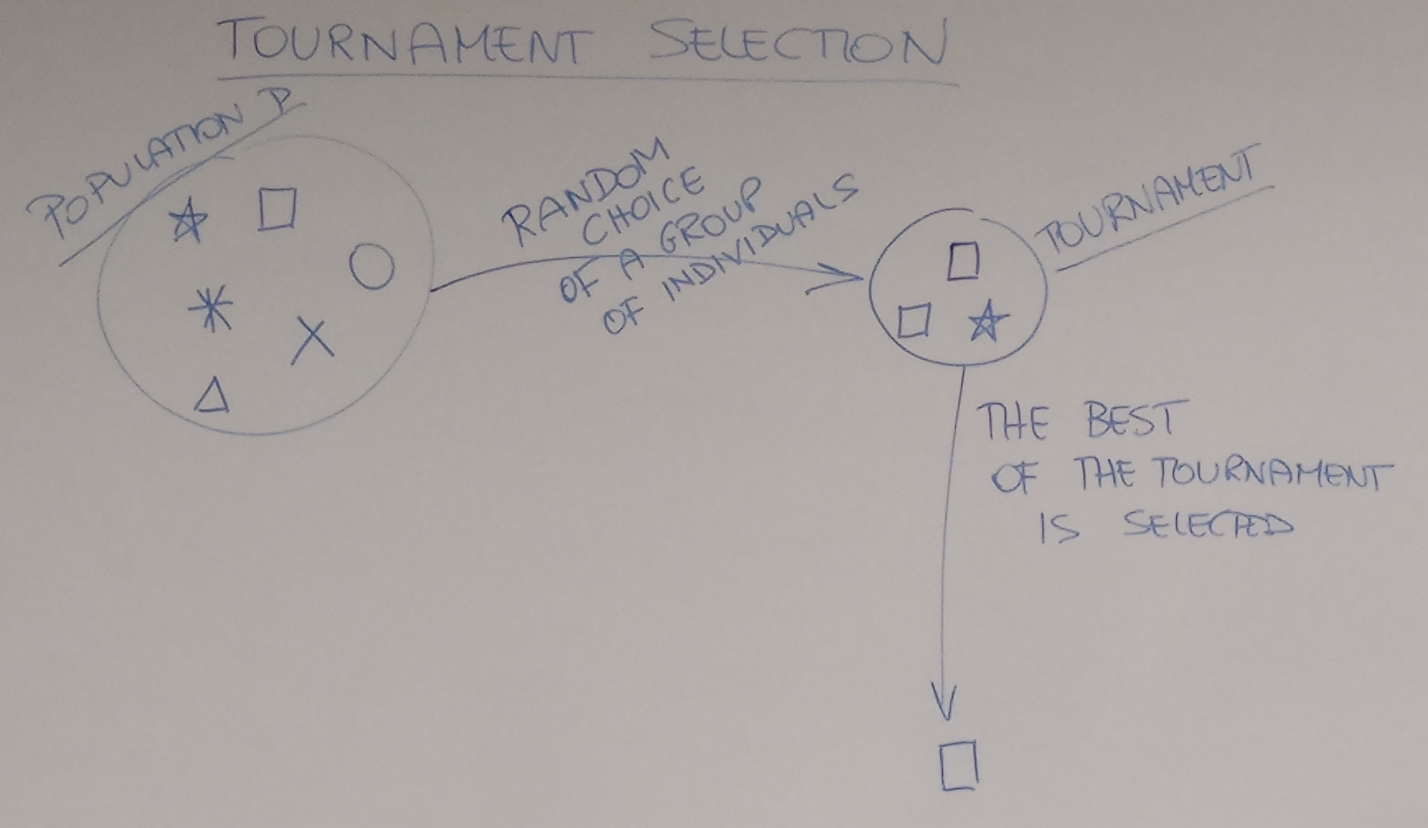 TOURNAMENT SELECTION
POPULATION P
RANDOM
CHOICE
OF A GROUP
OF INDIVIDUALS
TOURNAMENT
THE BEST
OF THE TOURNAMENT
IS SELECTED